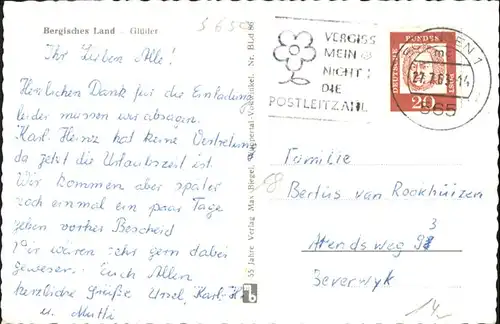 Bergisches Land - Glüder
Ihr Lieben Alle!
Herzlichen Dank für die Einladung
leider müssen wir absagen.
Karl-Heinz hat keine Vertretung
da jetzt die Urlaubszeit ist.
Wir kommen aber später
noch einmal ein paar Tage
geben vorher Bescheid
Wir wären sehr gern dabei
gewesen. Euch Allen
herzliche Grüße Ursel, Karl-H.
u. Mutti
55 Jahre Verlag Max Biegel, Wuppertal-Vohwinkel Nr.
VERGISS
MEIN
NICHT
DIE
POSTLEITZAHL
27.7.63-14
565
DEUTSCHE BUNDESPOST
20
Familie
Bertus van Rookhuizen
Arends weg 93
Beverwyk